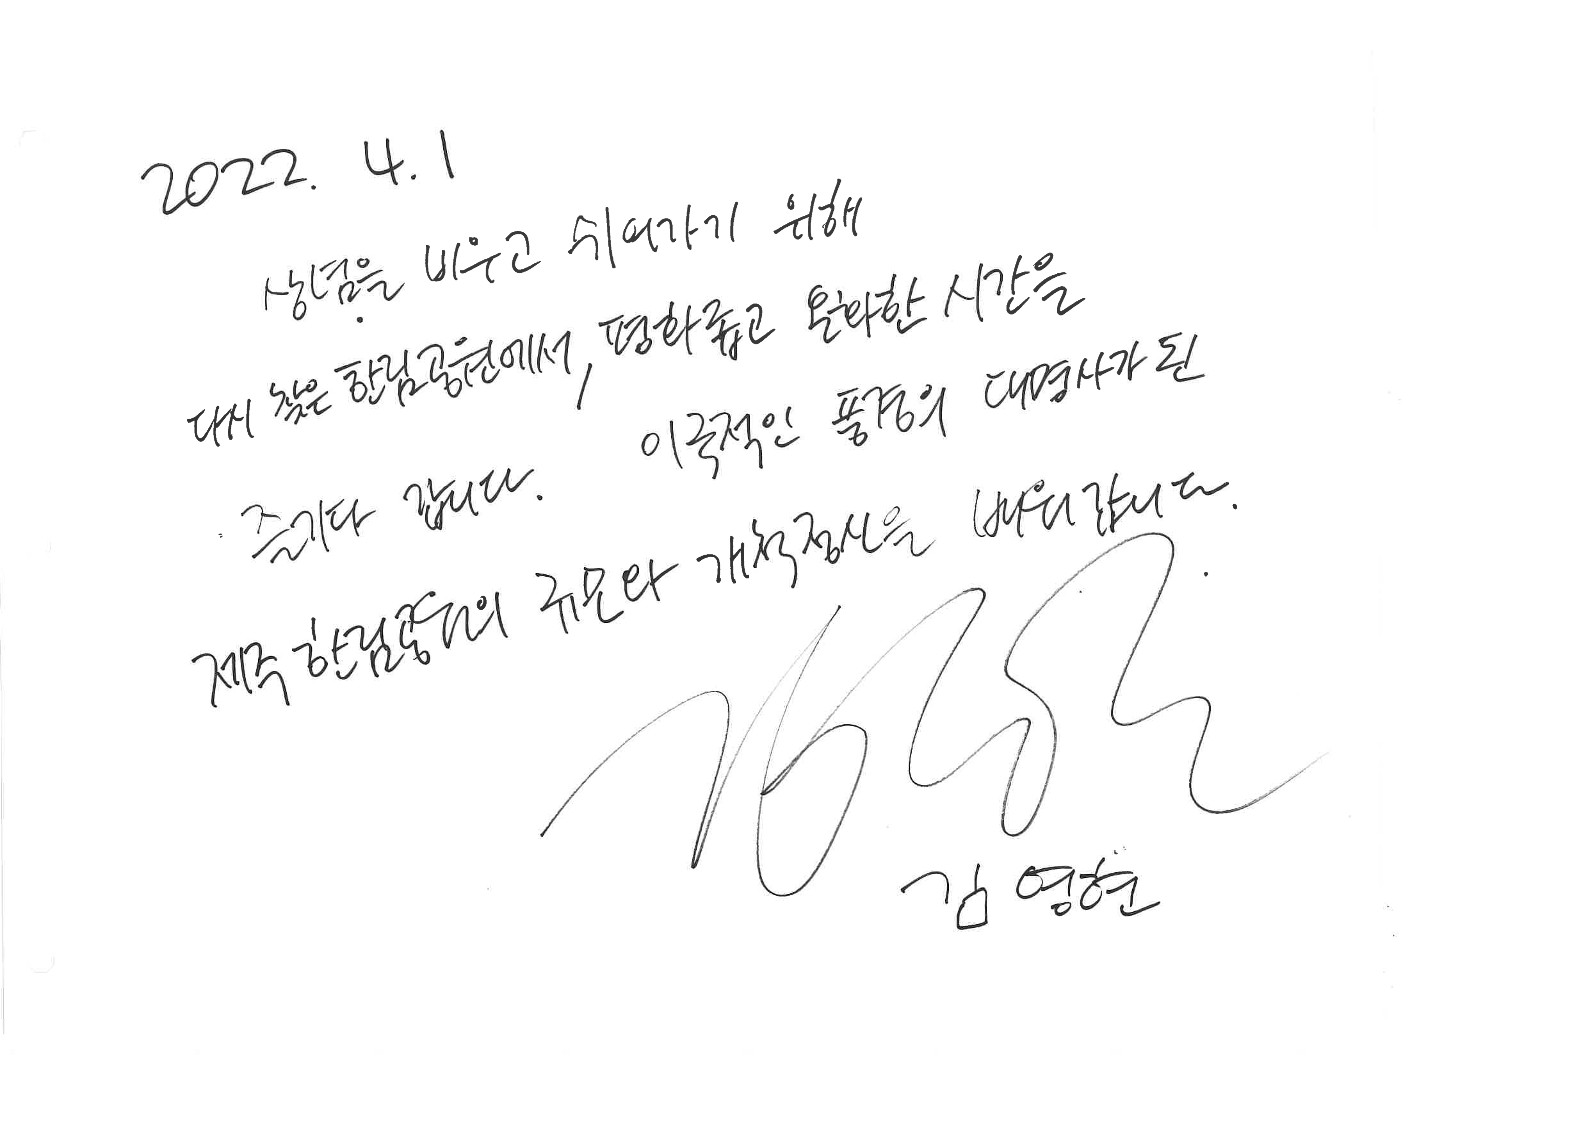 2022. 4. 1
상념을 비우고 쉬어가기 위해
다시 찾은 한림공원에서, 평화롭고 온화한 시간을
즐기다 갑니다. 이국적인 풍경의 대명사가 된
제주 한림공원의 규모와 개척정신을 배워갑니다.
김영현